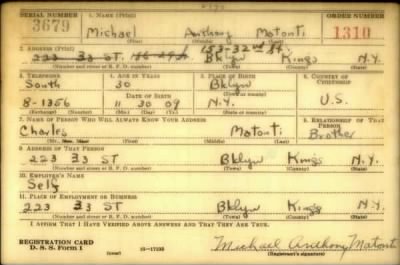 SERIAL NUMBER 1. NAME (Print) ORDER NUMBER
3679 Michael Anthony Matonti 1310
(First) (Middle) (Last)
2. ADDRESS (Print) 153-32nd St.
223 33 ST. Bklyn Kings N.Y.
(Number and street or R. F. D. number) (Town) (County) (State)
3. TELEPHONE 4. AGE IN YEARS 5. PLACE OF BIRTH 6. COUNTRY OF CITIZENSHIP
South 30 Bklyn
DATE OF BIRTH (Town or county)
8-1356 11 30 09 N.Y. U.S.
(Exchange) (Number) (Mo.) (Day) (Yr.) (State or country)
7. NAME OF PERSON WHO WILL ALWAYS KNOW YOUR ADDRESS 8. RELATIONSHIP OF THAT PERSON
Charles Matonti Brother
(Mr., Mrs., Miss) (First) (Middle) (Last)
9. ADDRESS OF THAT PERSON
223 33 ST Bklyn Kings N.Y.
(Number and street or R. F. D. number) (Town) (County) (State)
10. EMPLOYER'S NAME
Self
11. PLACE OF EMPLOYMENT OR BUSINESS
223 33 ST Bklyn Kings N.Y.
(Number and street or R. F. D. number) (Town) (County) (State)
I AFFIRM THAT I HAVE VERIFIED ABOVE ANSWERS AND THAT THEY ARE TRUE.
REGISTRATION CARD
D. S. S. Form 1 16-17105 Michael Anthony Matonti
(Registrant's signature)